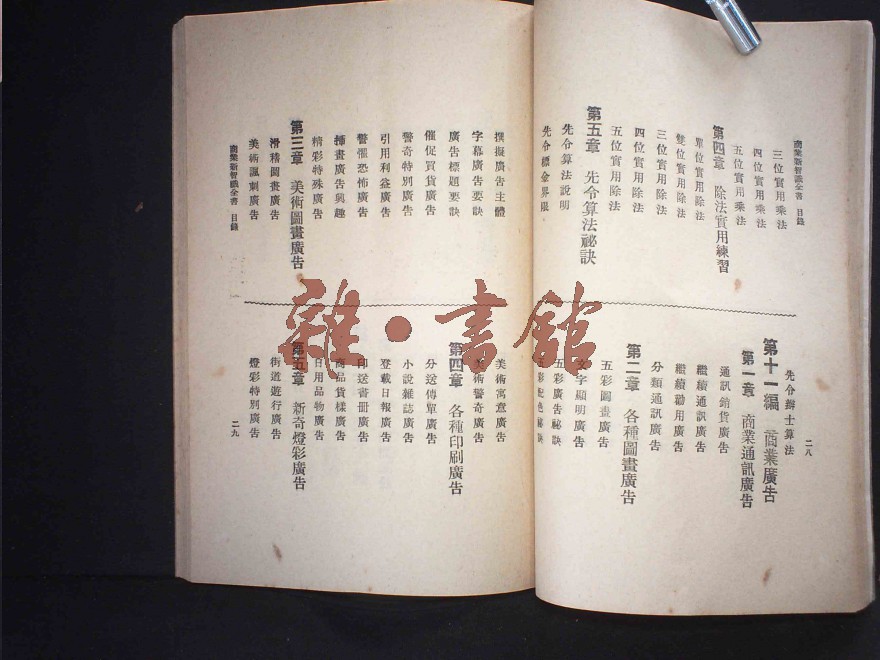 商業新智識全書 目錄
三位實用乘法
四位實用乘法
五位實用乘法
第四章 除法實用練習
單位實用除法
雙位實用除法
三位實用除法
四位實用除法
五位實用除法
第五章 先令算法祕訣
先令算法說明
先令標金界限
二八
先令辦士算法
第十一編 商業廣告
第一章 商業通訊廣告
通訊銷貨廣告
繼續通訊廣告
繼續勸用廣告
分類通訊廣告
第二章 各種圖畫廣告
五彩圖畫廣告
文字顯明廣告
五彩廣告祕訣
五彩配色祕訣
撰擬廣告主體
字幕廣告要訣
廣告標題要訣
催促買貨廣告
警奇特別廣告
引用利益廣告
警懼恐怖廣告
插畫廣告興趣
精彩特殊廣告
第三章 美術圖畫廣告
滑稽圖畫廣告
美術諷刺廣告
商業新智識全書 目錄
美術寓意廣告
美術警奇廣告
第四章 各種印刷廣告
分送傳單廣告
小說雜誌廣告
登載日報廣告
印送書冊廣告
商品貨樣廣告
日用品物廣告
第五章 新奇燈彩廣告
街道遊行廣告
燈彩特別廣告
二九
雜·書館